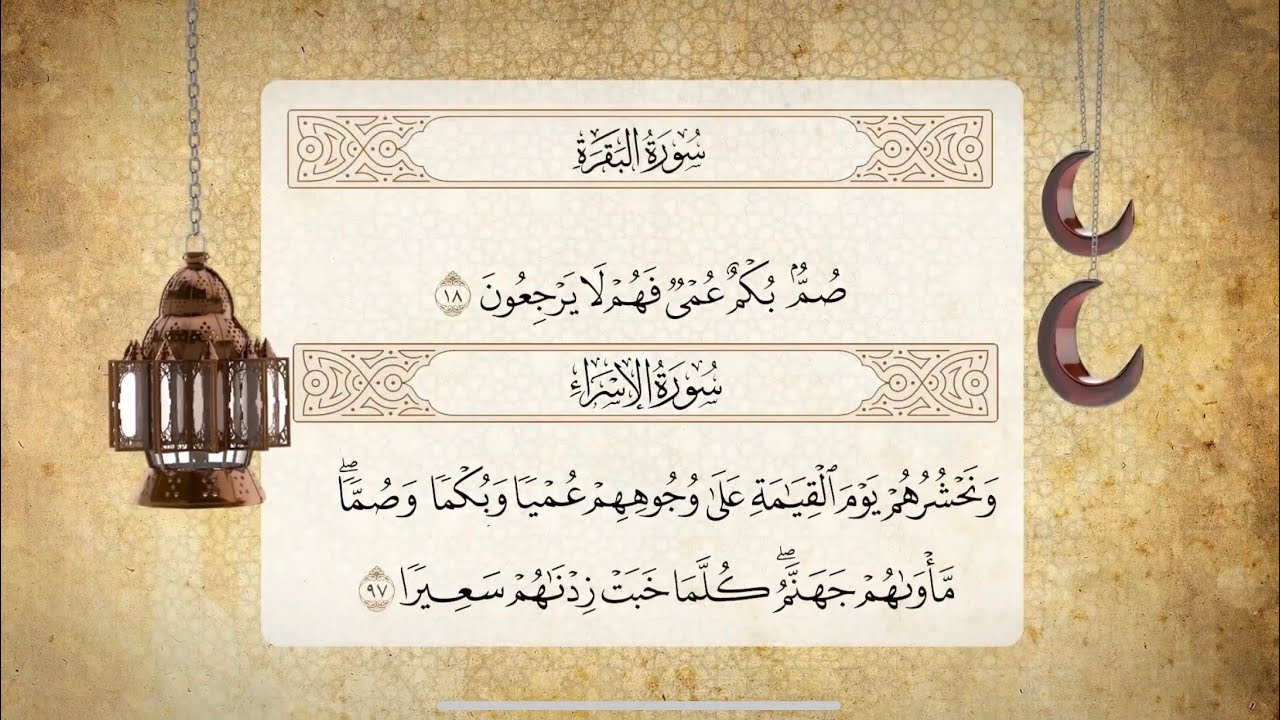 سُورَةُ البَقَرَةِ
صُمُّۢ بُكْمٌ عُمْىٌ فَهُمْ لَا يَرْجِعُونَ ١٨
سُورَةُ الإِسْرَاءِ
وَنَحْشُرُهُمْ يَوْمَ ٱلْقِيَـٰمَةِ عَلَىٰ وُجُوهِهِمْ عُمْيًا وَبُكْمًا وَصُمًّاۖ
مَّأْوَىٰهُمْ جَهَنَّمُۖ كُلَّمَا خَبَتْ زِدْنَـٰهُمْ سَعِيرًا ٩٧